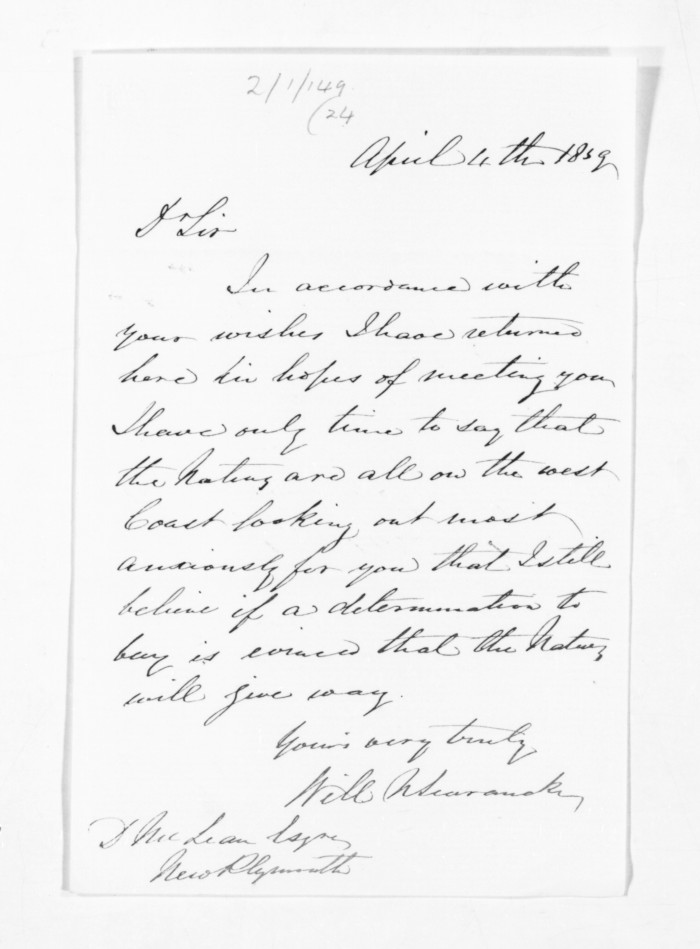 2/1/149
(24
April 4th 1859
Dr Sir
In accordance with
your wishes I have returned
here in hopes of meeting you
I have only time to say that
the Natives are all on the west
Coast looking out most
anxiously for you that I still
believe if a determination to
buy is evinced that the Natives
will give way.
Yours very truly
Will N Searancke
D McLean Esqre
New Plymouth